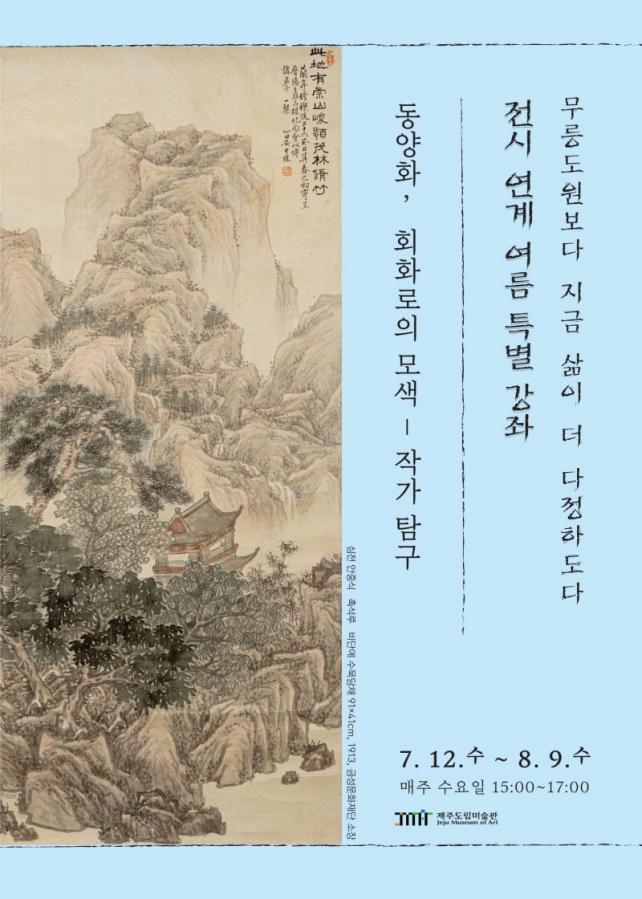 무릉도원보다 지금 삶이 더 다정하도다
전시 연계 여름 특별 강좌
동양화, 회화로의 모색 - 작가 탐구
此地有崇山峻嶺茂林脩竹
심전 안중식 촉석루 비단에 수묵담채 91×41cm, 1913, 금성문화재단 소장
7. 12.수 ~ 8. 9.수
매주 수요일 15:00~17:00
제주도립미술관
Jeju Museum of Art